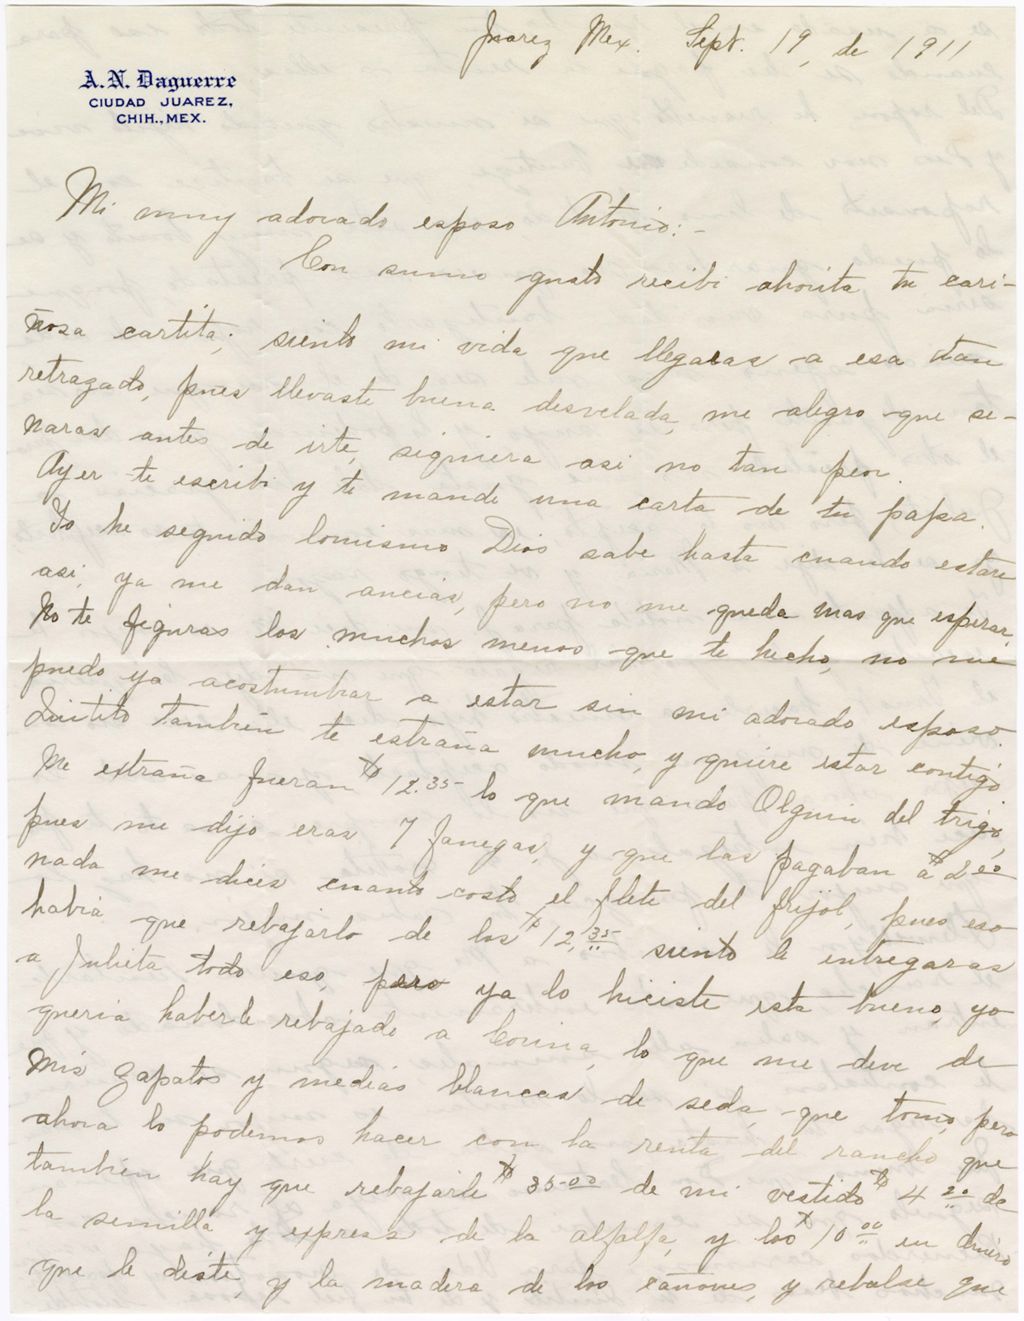 Juarez Mex. Sept. 19, de 1911
A. N. Daguerre
CIUDAD JUAREZ,
CHIH., MEX.
Mi muy adorado esposo Antonio:-
Con sumo gusto recibi ahorita tu cari-
ñosa cartita; siento mi vida que llegaras a esa tan
retrazado, pues llevaste buena desvelada, me alegro que se-
naras antes de irte, siguiera asi no tan peor.
Ayer te escribi y te mande una carta de tu papa.
Yo he seguido lomismo Dios sabe hasta cuando estare
asi, ya me dan ancias, pero no me queda mas que esperar.
No te figuras los muchos menos que te hecho, no me
puedo ya acostumbrar a estar sin mi adorado esposo.
Luitito también te estraña mucho, y quiere estar contigo
Me extraña fueran $12.35 lo que mando Olguin del trigo,
pues me dijo eras 7 fanegas, y que las pagaban a $2.00
nada me dices cuanto costo el flete del frijol, pues eso
habia que rebajarlo de los $12,35 siento le entregaras
a Julieta todo eso, pero ya lo hiciste esta bueno, yo
queria haberle rebajado a Corina, lo que me deve de
mis zapatos y medias blancas de seda, que tomo, pero
ahora lo podemos hacer con la renta del rancho, que
también hay que rebajarle $35.00 de mi vestido $4.20 de
la semilla y express de la alfalfa, y los $10.00 en dinero
que le diste, y la madera de los cañones, y rebalse que